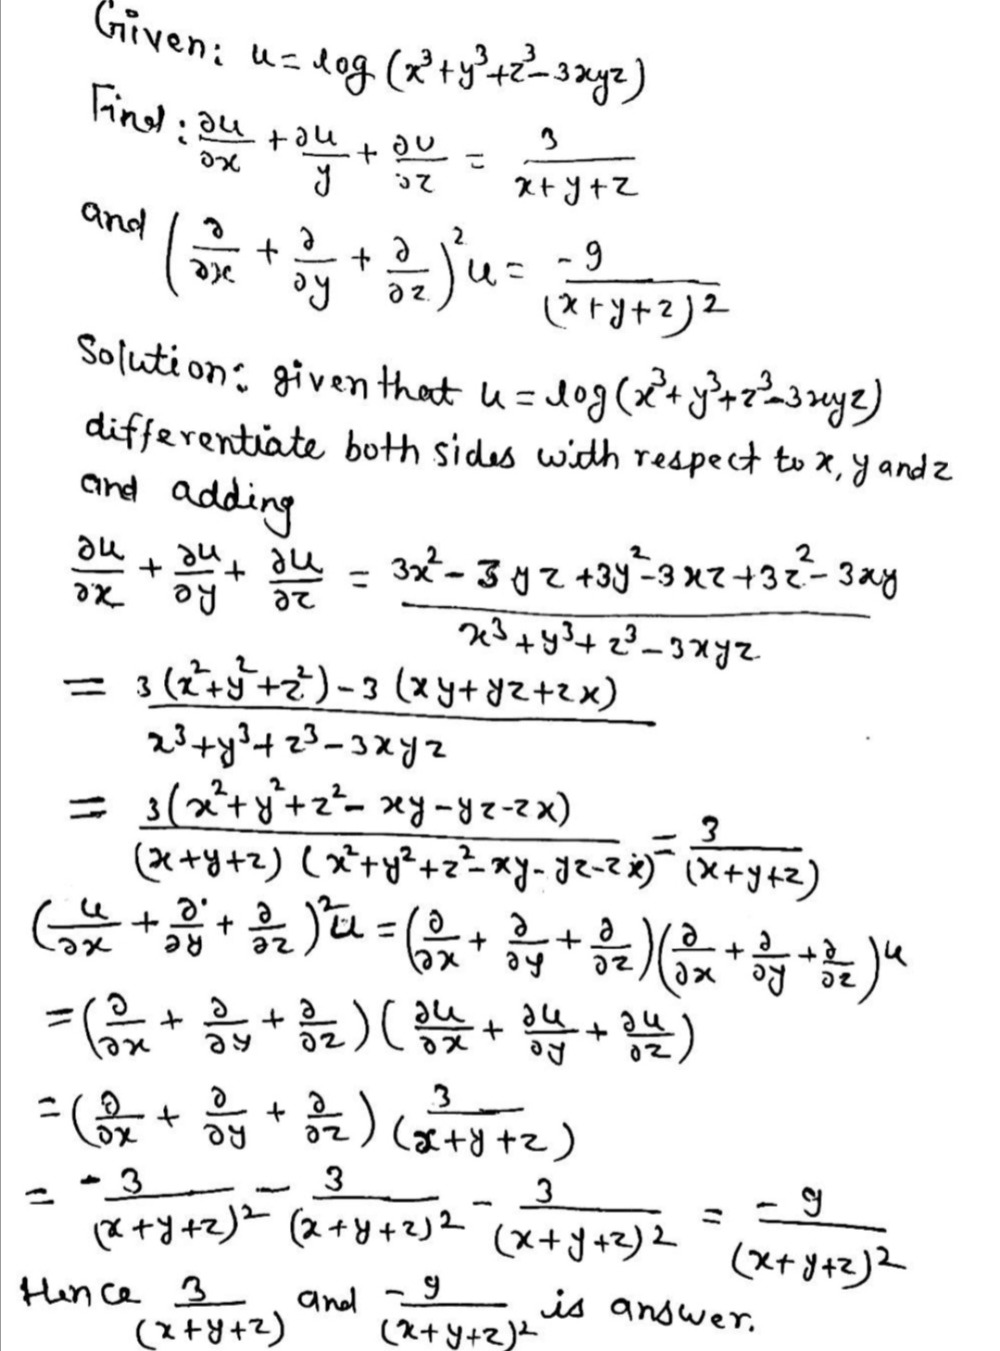 Given: u = log (x³+y³+z³-3xyz)
Find: ∂u/∂x + ∂u/y + ∂u/∂z = 3/(x+y+z)
and (∂/∂x + ∂/∂y + ∂/∂z)² u = -9/(x+y+z)²
Solution: given that u = log (x³+y³+z³-3xyz)
differentiate both sides with respect to x, y and z
and adding
∂u/∂x + ∂u/∂y + ∂u/∂z = (3x²-3yz+3y²-3xz+3z²-3xy)/(x³+y³+z³-3xyz)
= (3(x²+y²+z²)-3(xy+yz+zx))/(x³+y³+z³-3xyz)
= 3(x²+y²+z²-xy-yz-zx)/((x+y+z)(x²+y²+z²-xy-yz-zx)) = 3/(x+y+z)
(u/∂x + ∂/∂y + ∂/∂z)² u = (∂/∂x + ∂/∂y + ∂/∂z)(∂/∂x + ∂/∂y + ∂/∂z) u
= (∂/∂x + ∂/∂y + ∂/∂z)(∂u/∂x + ∂u/∂y + ∂u/∂z)
= (∂/∂x + ∂/∂y + ∂/∂z) (3/(x+y+z))
= -3/(x+y+z)² - 3/(x+y+z)² - 3/(x+y+z)² = -9/(x+y+z)²
Hence 3/(x+y+z) and -9/(x+y+z)² is answer.